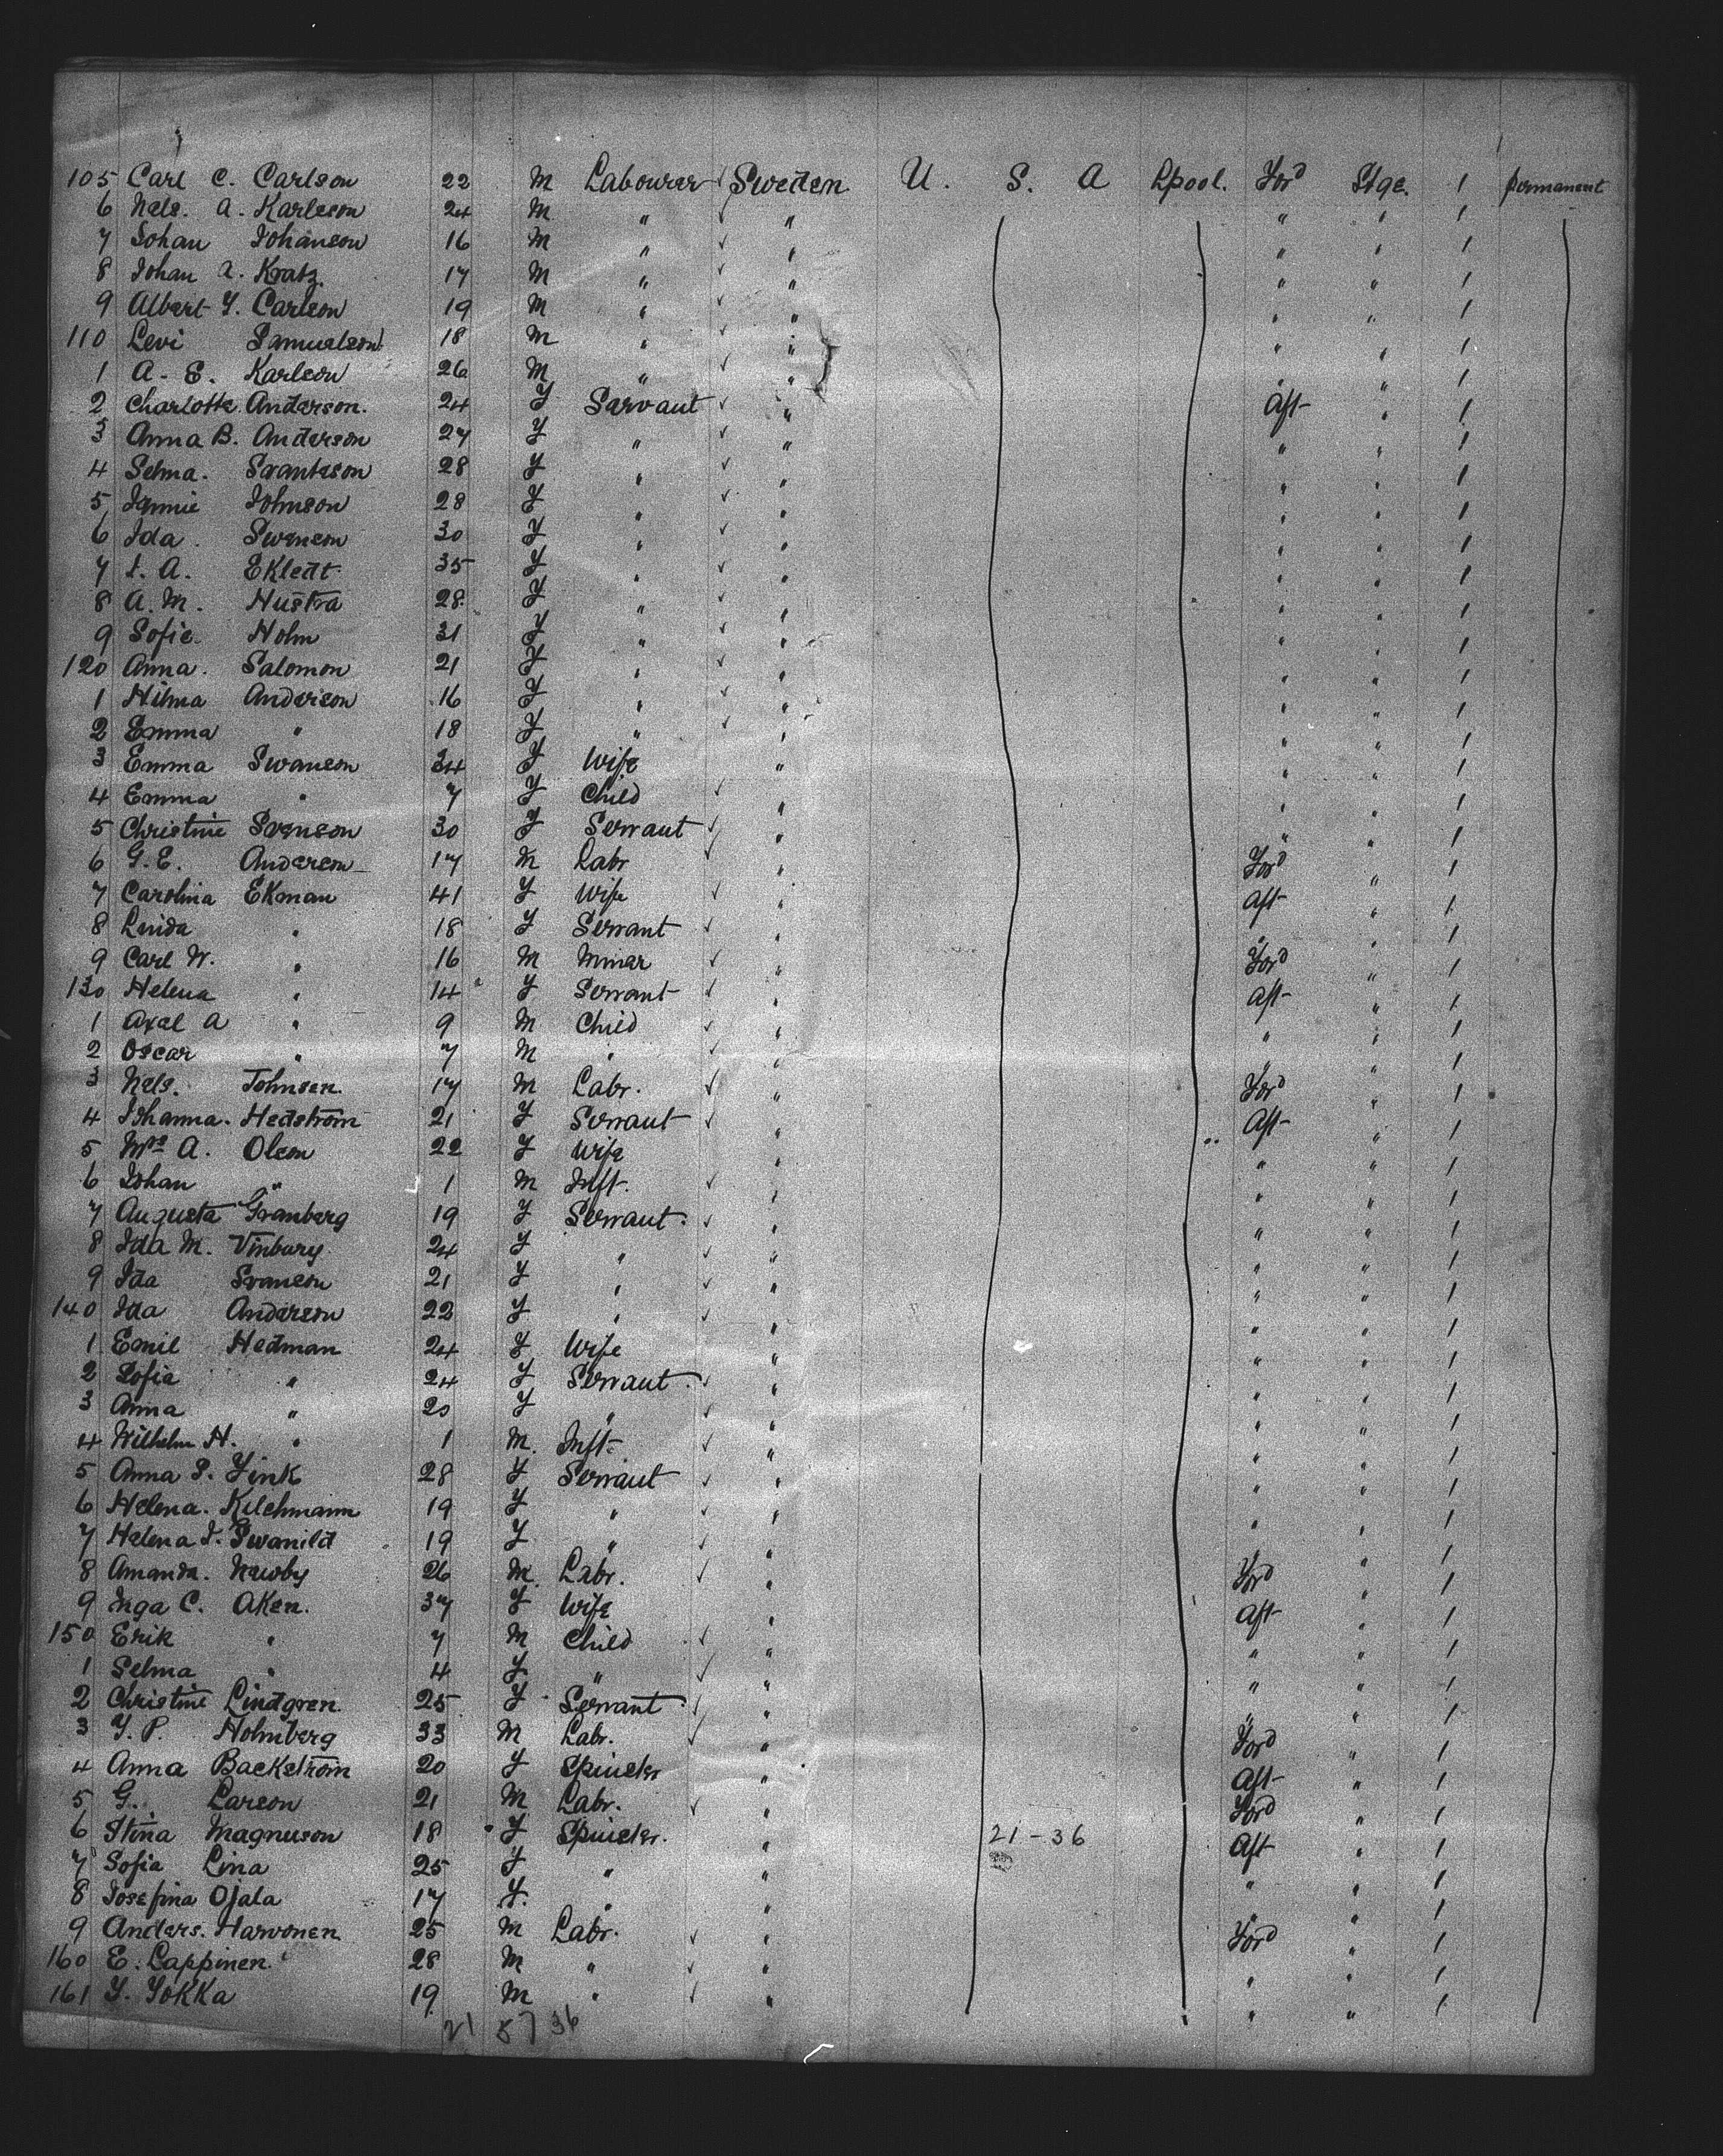 105 Carl C. Carlson 22 M Labourer Sweden U. S. A Lpool. Ford Stge. 1 permanent
6 Nels. A. Karlsson 24 M " " " " 1
7 Johan Johanson 16 M " " " " 1
8 Johan A. Kratz. 17 M " " " " 1
9 Albert F. Carlson 19 M " " " " 1
110 Levi Samuelson 18 M " " " " 1
1 A. E. Karlson 26 M " " " " 1
2 Charlotte Anderson. 24 F Servant " Aft " 1
3 Anna B. Anderson 27 F " " " " 1
4 Selma. Svanteson 28 F " " " " 1
5 Jennie Johnson 28 F " " " " 1
6 Ida. Swenson 30 F " " " " 1
7 I. A. Ekledt 35 F " " " " 1
8 A. M. Hustra 28 F " " " " 1
9 Sofie Holm 31 F " " " " 1
120 Anna. Salomon 21 F " " " " 1
1 Hilma Anderson 16 F " " " " 1
2 Emma " 18 F " " " " 1
3 Emma Swanson 34 F Wife " " " 1
4 Emma " 7 F Child " " " 1
5 Christine Svenson 30 F Servant " " " 1
6 G. E. Anderson 17 M Labr " Ford " 1
7 Carolina Ekman 41 F Wife " Aft " 1
8 Linida " 18 F Servant " " " 1
9 Carl W. " 16 M Miner " Ford " 1
130 Helena " 14 F Servant " Aft " 1
1 Axel A " 9 M Child " " " 1
2 Oscar " 7 M " " " " 1
3 Nels. Johnsen. 17 M Labr. " Ford " 1
4 Johanna. Hedström 21 F Servant " Aft " 1
5 Mrs A. Olson 22 F Wife " " " 1
6 Johan " 1 M Inft. " " " 1
7 Augusta Granberg 19 F Servant. " " " 1
8 Ida M. Vinbury 24 F " " " " 1
9 Ida Svanson 21 F " " " " 1
140 Ida Anderson 22 F " " " " 1
1 Emil Hedman 24 F Wife " " " 1
2 Sofia " 24 F Servant " " " 1
3 Anna " 20 F " " " " 1
4 Wilhelm H. " 1 M. Inft. " " " 1
5 Anna S. Fink 28 F Servant " " " 1
6 Helena. Kilehmann 19 F " " " " 1
7 Helena I. Swanild 19 F " " " " 1
8 Amanda. Newby 26 M. Labr. " Ford " 1
9 Inga C. Aken. 37 F Wife " Aft " 1
150 Erik " 7 M Child " " " 1
1 Selma " 4 F " " " " 1
2 Christine Lindgren 25 F Servant " " " 1
3 F. P. Holmberg 33 M Labr. " Ford " 1
4 Anna Backström 20 F Spinster " Aft " 1
5 G. Larson 21 M Labr. " Ford " 1
6 Stina Magnuson 18 F Spinster. " 21-36 Aft " 1
7 Sofia Lina 25 F " " " " 1
8 Josefina Ojala 17 F. " " " " 1
9 Anders. Harvonen 25 M Labr. " Ford " 1
160 E. Lappinen. 28 M " " " " 1
161 Y. Yokka 19 M " " " " 1
21 57 36